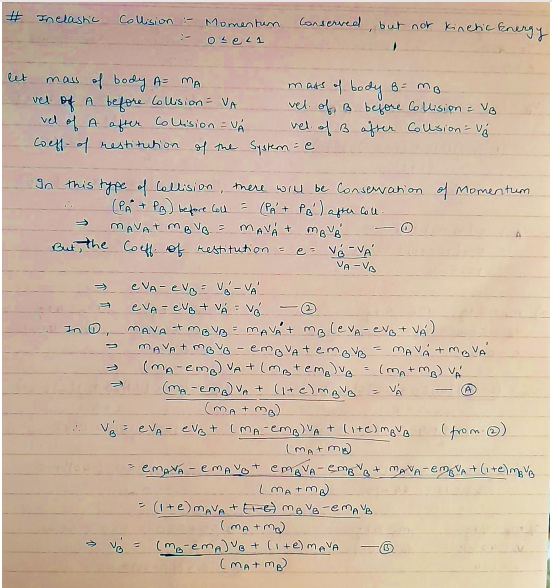 # Inelastic Collision :- Momentum Conserved, but not Kinetic Energy
:- 0 ≤ e < 1
Let mass of body A = mA mass of body B = mB
vel of A before Collision = VA vel. of B before Collision = VB
vel of A after Collision = VA' vel of B after Collision = VB'
Coeff. of restitution of the System = e
In this type of Collision, there will be Conservation of Momentum
∴ (PA + PB) before Coll = (PA' + PB') after Coll.
⇒ mAVA + mBVB = mAVA' + mBVB' — ①
But, The Coeff. of restitution = e = (VB' - VA') / (VA - VB)
⇒ eVA - eVB = VB' - VA'
⇒ eVA - eVB + VA' = VB' — ②
∴ In ①, mAVA + mBVB = mAVA' + mB (eVA - eVB + VA')
⇒ mAVA + mBVB - emBVA + emBVB = mAVA' + mBVA'
⇒ (mA - emB) VA + (mB + emB) VB = (mA + mB) VA'
⇒ ((mA - emB) VA + (1+e) mBVB) / (mA + mB) = VA' — Ⓐ
∴ VB' = eVA - eVB + ((mA - emB) VA + (1+e) mBVB) / (mA + mB) (from ②)
= (emAVA - emAVB + emBVA - emBVB + mAVA - emBVA + (1+e) mBVB) / (mA + mB)
= ((1+e) mAVA + mBVB - emAVB) / (mA + mB)
⇒ VB' = ((mB - emA) VB + (1+e) mAVA) / (mA + mB) — Ⓑ